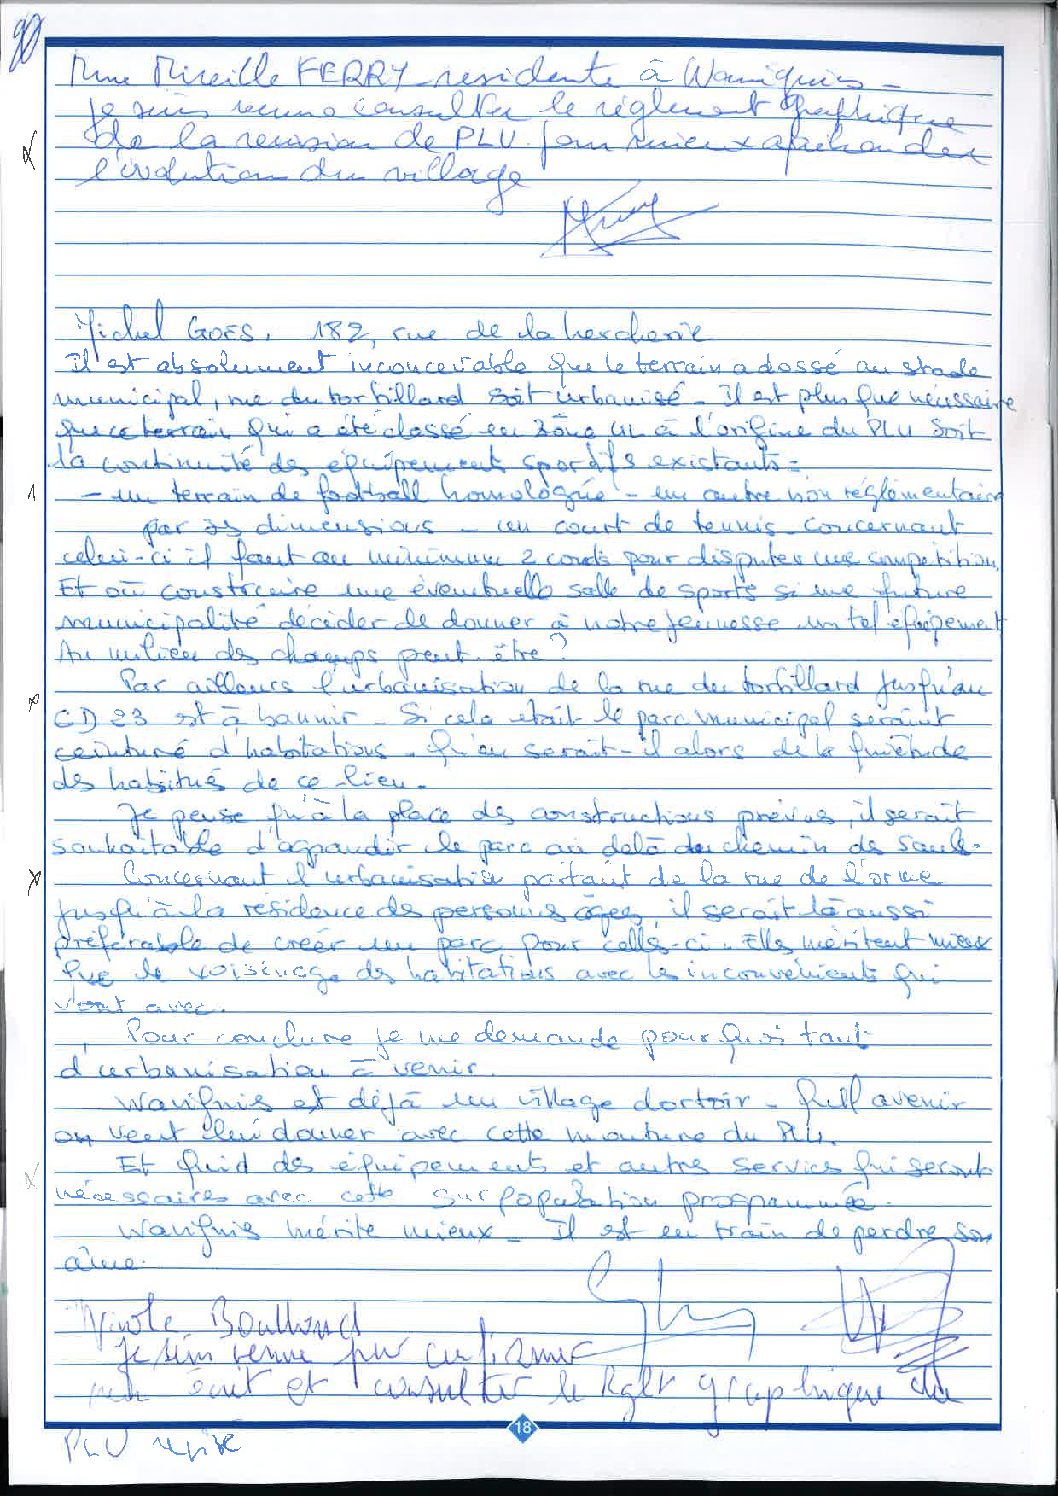 Mme Mireille FERRY residente à Wavignies -
je suis venue consulter le réglement graphique
de la revision de PLU pour mieux apréhender
l'évolution du village
Michel GOES, 182, rue de la hercherie
Il est absolument inconcevable que le terrain adossé au stade
municipal, rue du tortillard soit urbanisé - Il est plus que nécessaire
que ce terrain qui a été classé en zône UL à l'origine du PLU soit
la continuité des équipements sportifs existants =
- un terrain de football homologué - un autre non réglementaire
par ses dimensions - un court de tennis. Concernant
celui-ci il faut au minimum 2 courts pour disputer une compétition,
Et où construire une éventuelle salle de sports si une future
municipalité décider de donner à notre jeunesse un tel équipement
Au milieu des champs peut être ?
Par ailleurs l'urbanisation de la rue du tortillard jusqu'au
CD 23 est à bannir - Si cela était le parc municipal seraint
ceinturé d'habitations. Qu'en serait-il alors de la quiétude
des habitués de ce lieu.
Je pense qu'à la place des constructions prévues, il serait
souhaitable d'agrandir le parc au delà du chemin de Sauls.
Concernant l'urbanisation partant de la rue de l'orme
jusqu'à la résidence des personnes âgées, il serait là aussi
préférable de creér un parc pour celles-ci. Elles méritent mieux
que le voisinage des habitations avec les inconvénients qui
vont avec.
Pour conclure je me demande pourquoi tant
d'urbanisation à venir.
Wavignies est déjà un village dortoir - Quel avenir
on veut lui donner avec cette mouture du PLU.
Et quid des équipements et autres services qui seront
nécessaires avec cette surpopulation programmée.
Wavignies mérite mieux - Il est en train de perdre son
âme.
Nicole
Je suis venue pour confirmer
mon écrit et consulter le Rglt graphique du
18
PLU révisé